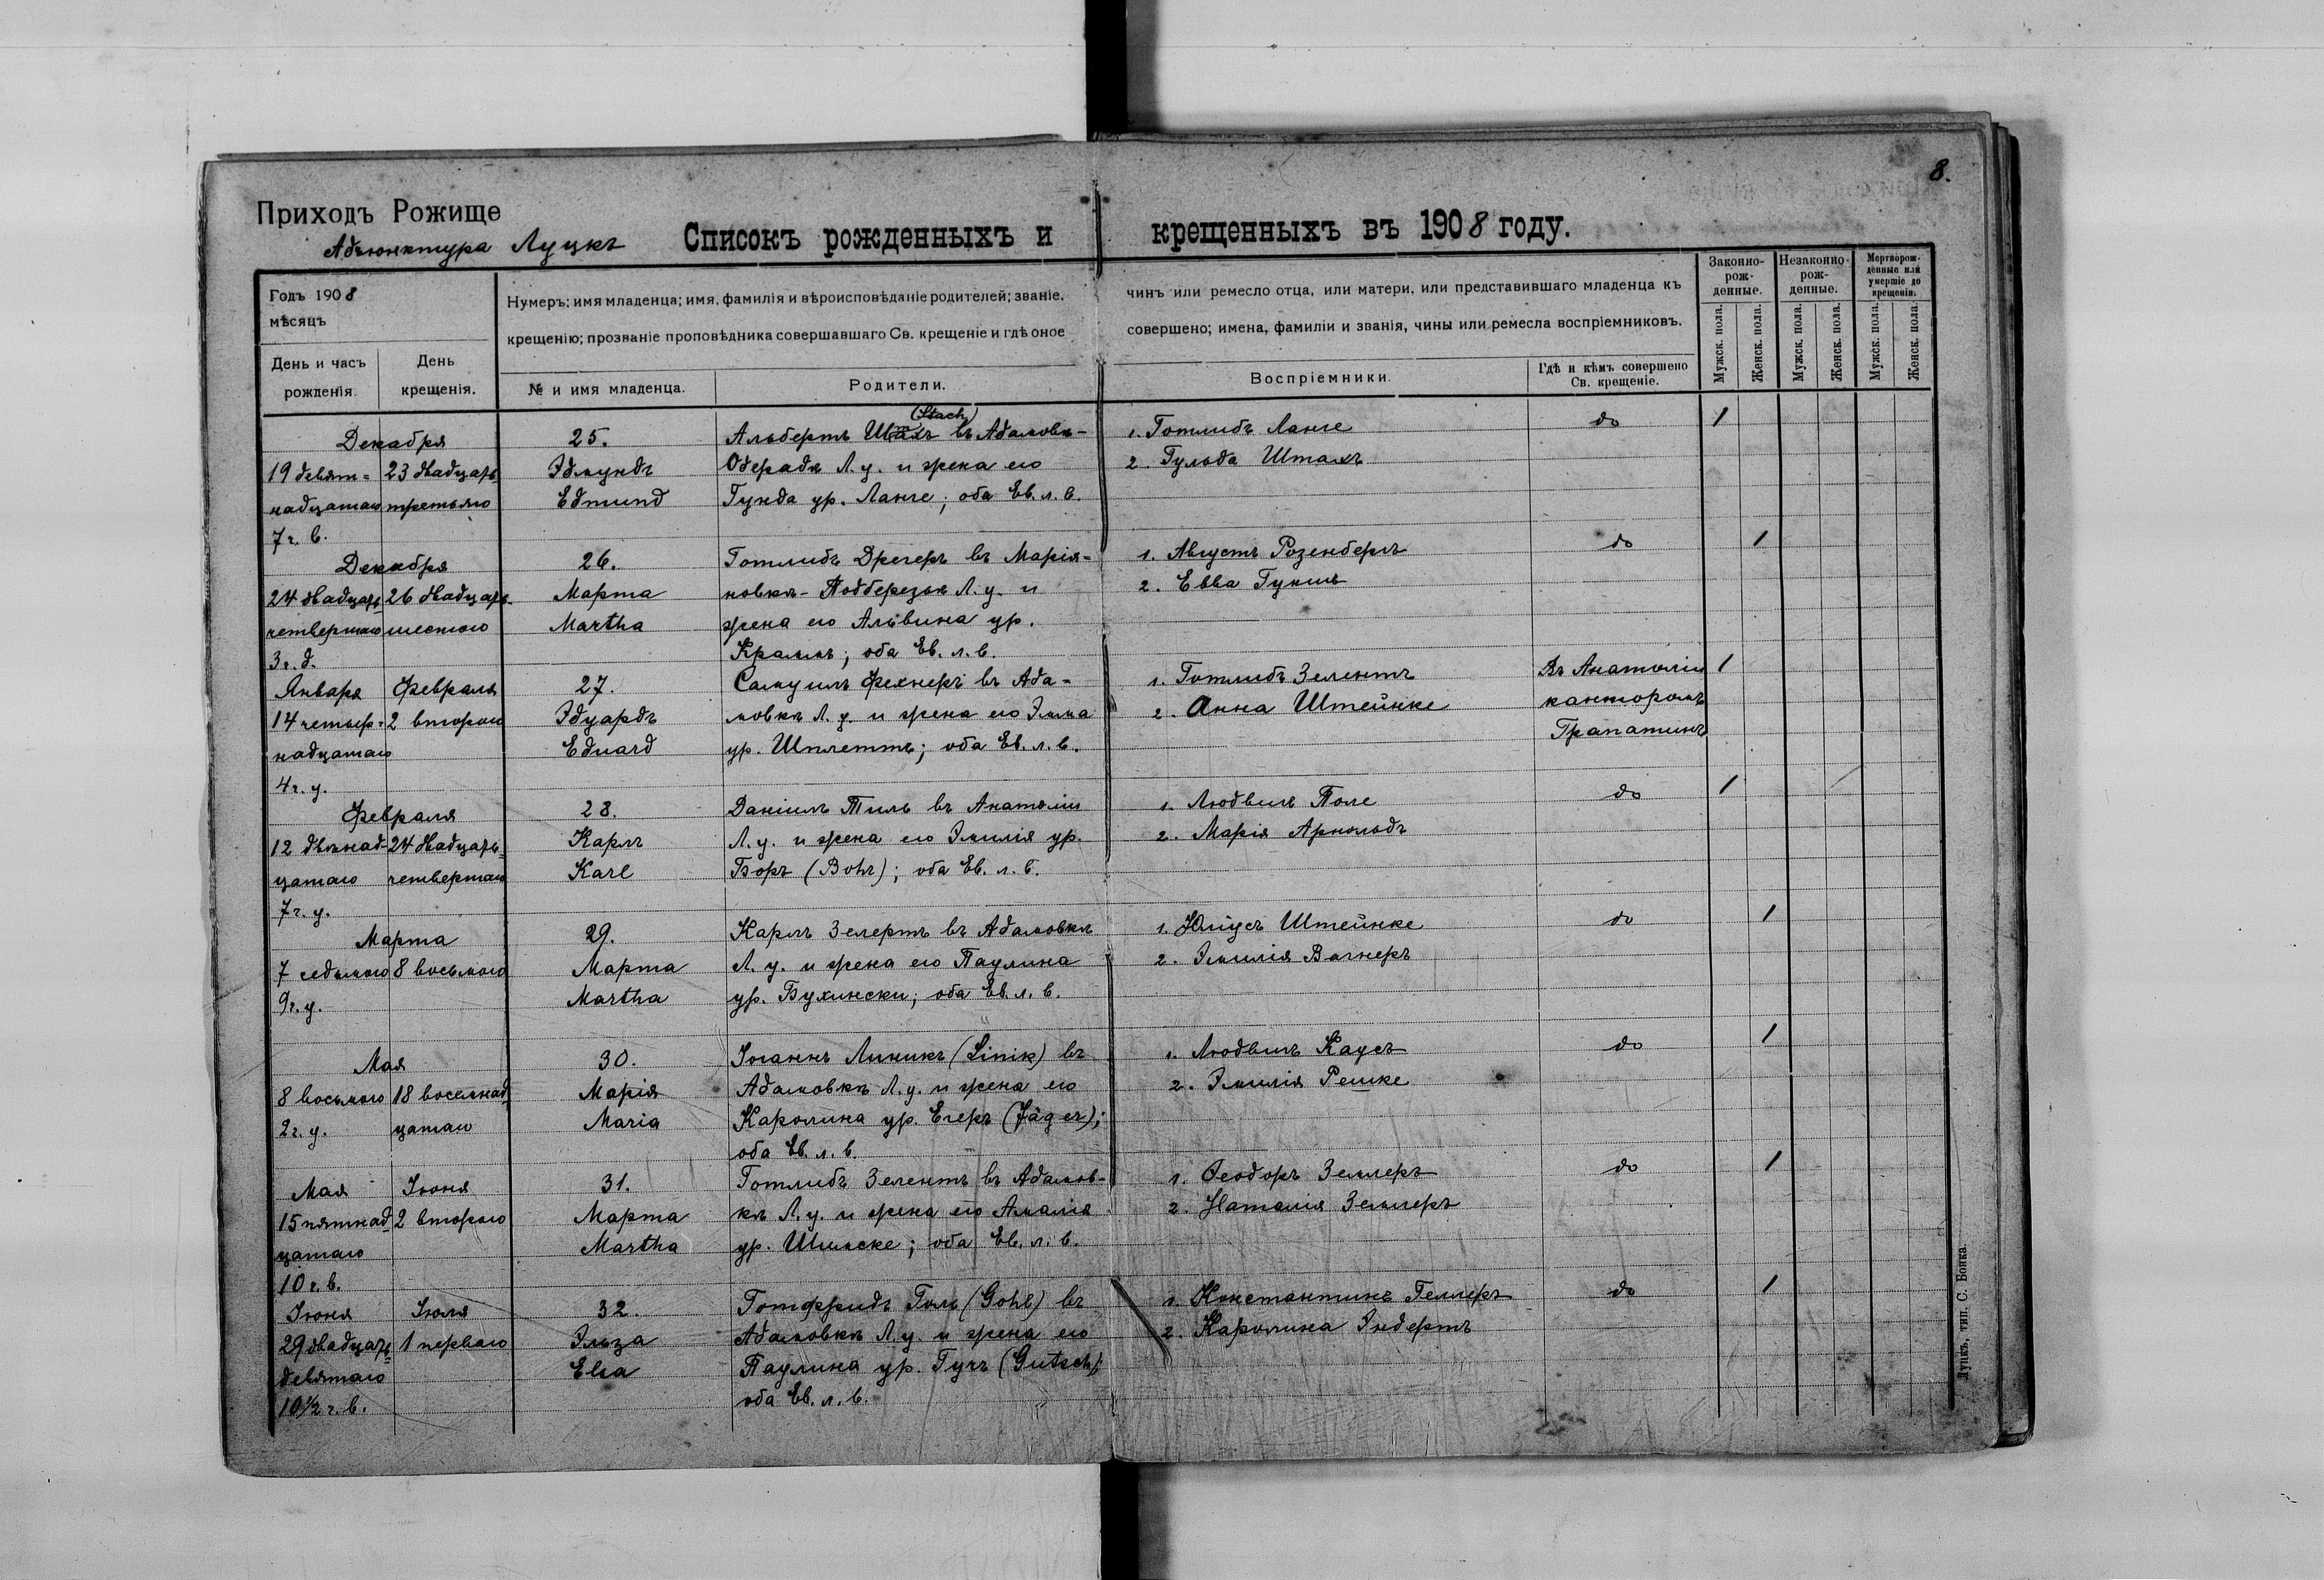 8.
Приходъ Рожище
Адъюнктура Луцкъ
Списокъ рожденныхъ и крещенныхъ въ 1908 году.
Годъ 1908
мѣсяцъ
День и часъ рожденія.
День крещенія.
Нумеръ; имя младенца; имя, фамилія и вѣроисповѣданіе родителей; званіе, чинъ или ремесло отца, или матери, или представившаго младенца къ
крещенію; прозваніе проповѣдника совершавшаго Св. крещеніе и гдѣ оное совершено; имена, фамиліи и званія, чины или ремесла воспріемниковъ.
№ и имя младенца.
Родители.
Воспріемники.
Гдѣ и кѣмъ совершено Св. крещеніе.
Законно-рож-денные.
Незаконно-рож-денные.
Мертворож-денные или умершіе до крещенія.
Мужск. пола.
Женск. пола.
Мужск. пола.
Женск. пола.
Мужск. пола.
Женск. пола.
(Stach)
Декабря 25. Альбертъ въ Адамовк- 1. Готлибъ Ланге до 1
19 девят= 23 двадцать Эдмундъ Л.у. и жена его 2. Гульда Штахъ
надцатаго третьяго Edmund ур. Ланге; оба Ев. л. в.
7 ч. в.
Декабря 26. Готлибъ Дрегеръ въ Марія- 1. Августъ Розенбергъ до 1
24 двадцать 26 двадцать Марта новкѣ-Подберезок Л.у. и 2. Евва
четвертаго шестого Martha жена его Альвина ур.
3 ч. д. оба Ев. л. в.
Января Февраля 27. Самуилъ Фехнеръ въ Ада= 1. Готлибъ Зелентъ Въ Анатоліи 1
14 четыр= 2 второго Эдуардъ мовкѣ Л.у. и жена его Эмма 2. Анна Штейнке канторомъ
надцатаго Eduard ур. оба Ев. л. в.
4 ч. у.
Февраля 28. Даніилъ Тиль въ Анатоліи 1. Людвигъ Поле до 1
12 двѣнад- 24 двадцать Карлъ Л.у. и жена его Эмилія ур. 2. Марія Арнольдъ
цатаго четвертаго Karl Боръ (Bohr); оба Ев. л. в.
7 ч. у.
Марта 29. Карлъ Зелертъ въ Адамовкѣ 1. Юліусъ Штейнке до 1
7 седьмого 8 восьмого Марта Л.у. и жена его Паулина 2. Эмилія Вагнеръ
9 ч. у. Martha ур. Бухински; оба Ев. л. в.
Мая 30. Іоганнъ Линикъ (Linik) въ 1. Людвигъ Каусъ до 1
8 восьмого 18 восемнад Марія Адамовкѣ Л.у. и жена его 2. Эмилія Решке
2 ч. у. цатаго Maria Каролина ур. Егеръ (Jäger);
оба Ев. л. в.
Мая Іюня 31. Готлибъ Зелентъ въ Адамов- 1. Феодоръ Земмеръ до 1
15 пятнад 2 второго Марта кѣ Л.у. и жена его Амалія 2. Наталія Земмеръ
цатаго Martha ур. Шимске; оба Ев. л. в.
10 ч. в.
Іюня Іюля 32. Готфридъ Голь (Gohl) въ 1. Константинъ Геллеръ до 1
29 двадцать 1 перваго Эльза Адамовкѣ Л.у. и жена его 2. Каролина Эндертъ
девятаго Elsa Паулина ур. Гучъ (Gutsch);
10½ ч. в. оба Ев. л. в.
Луцкъ, тип. С. Бонка.